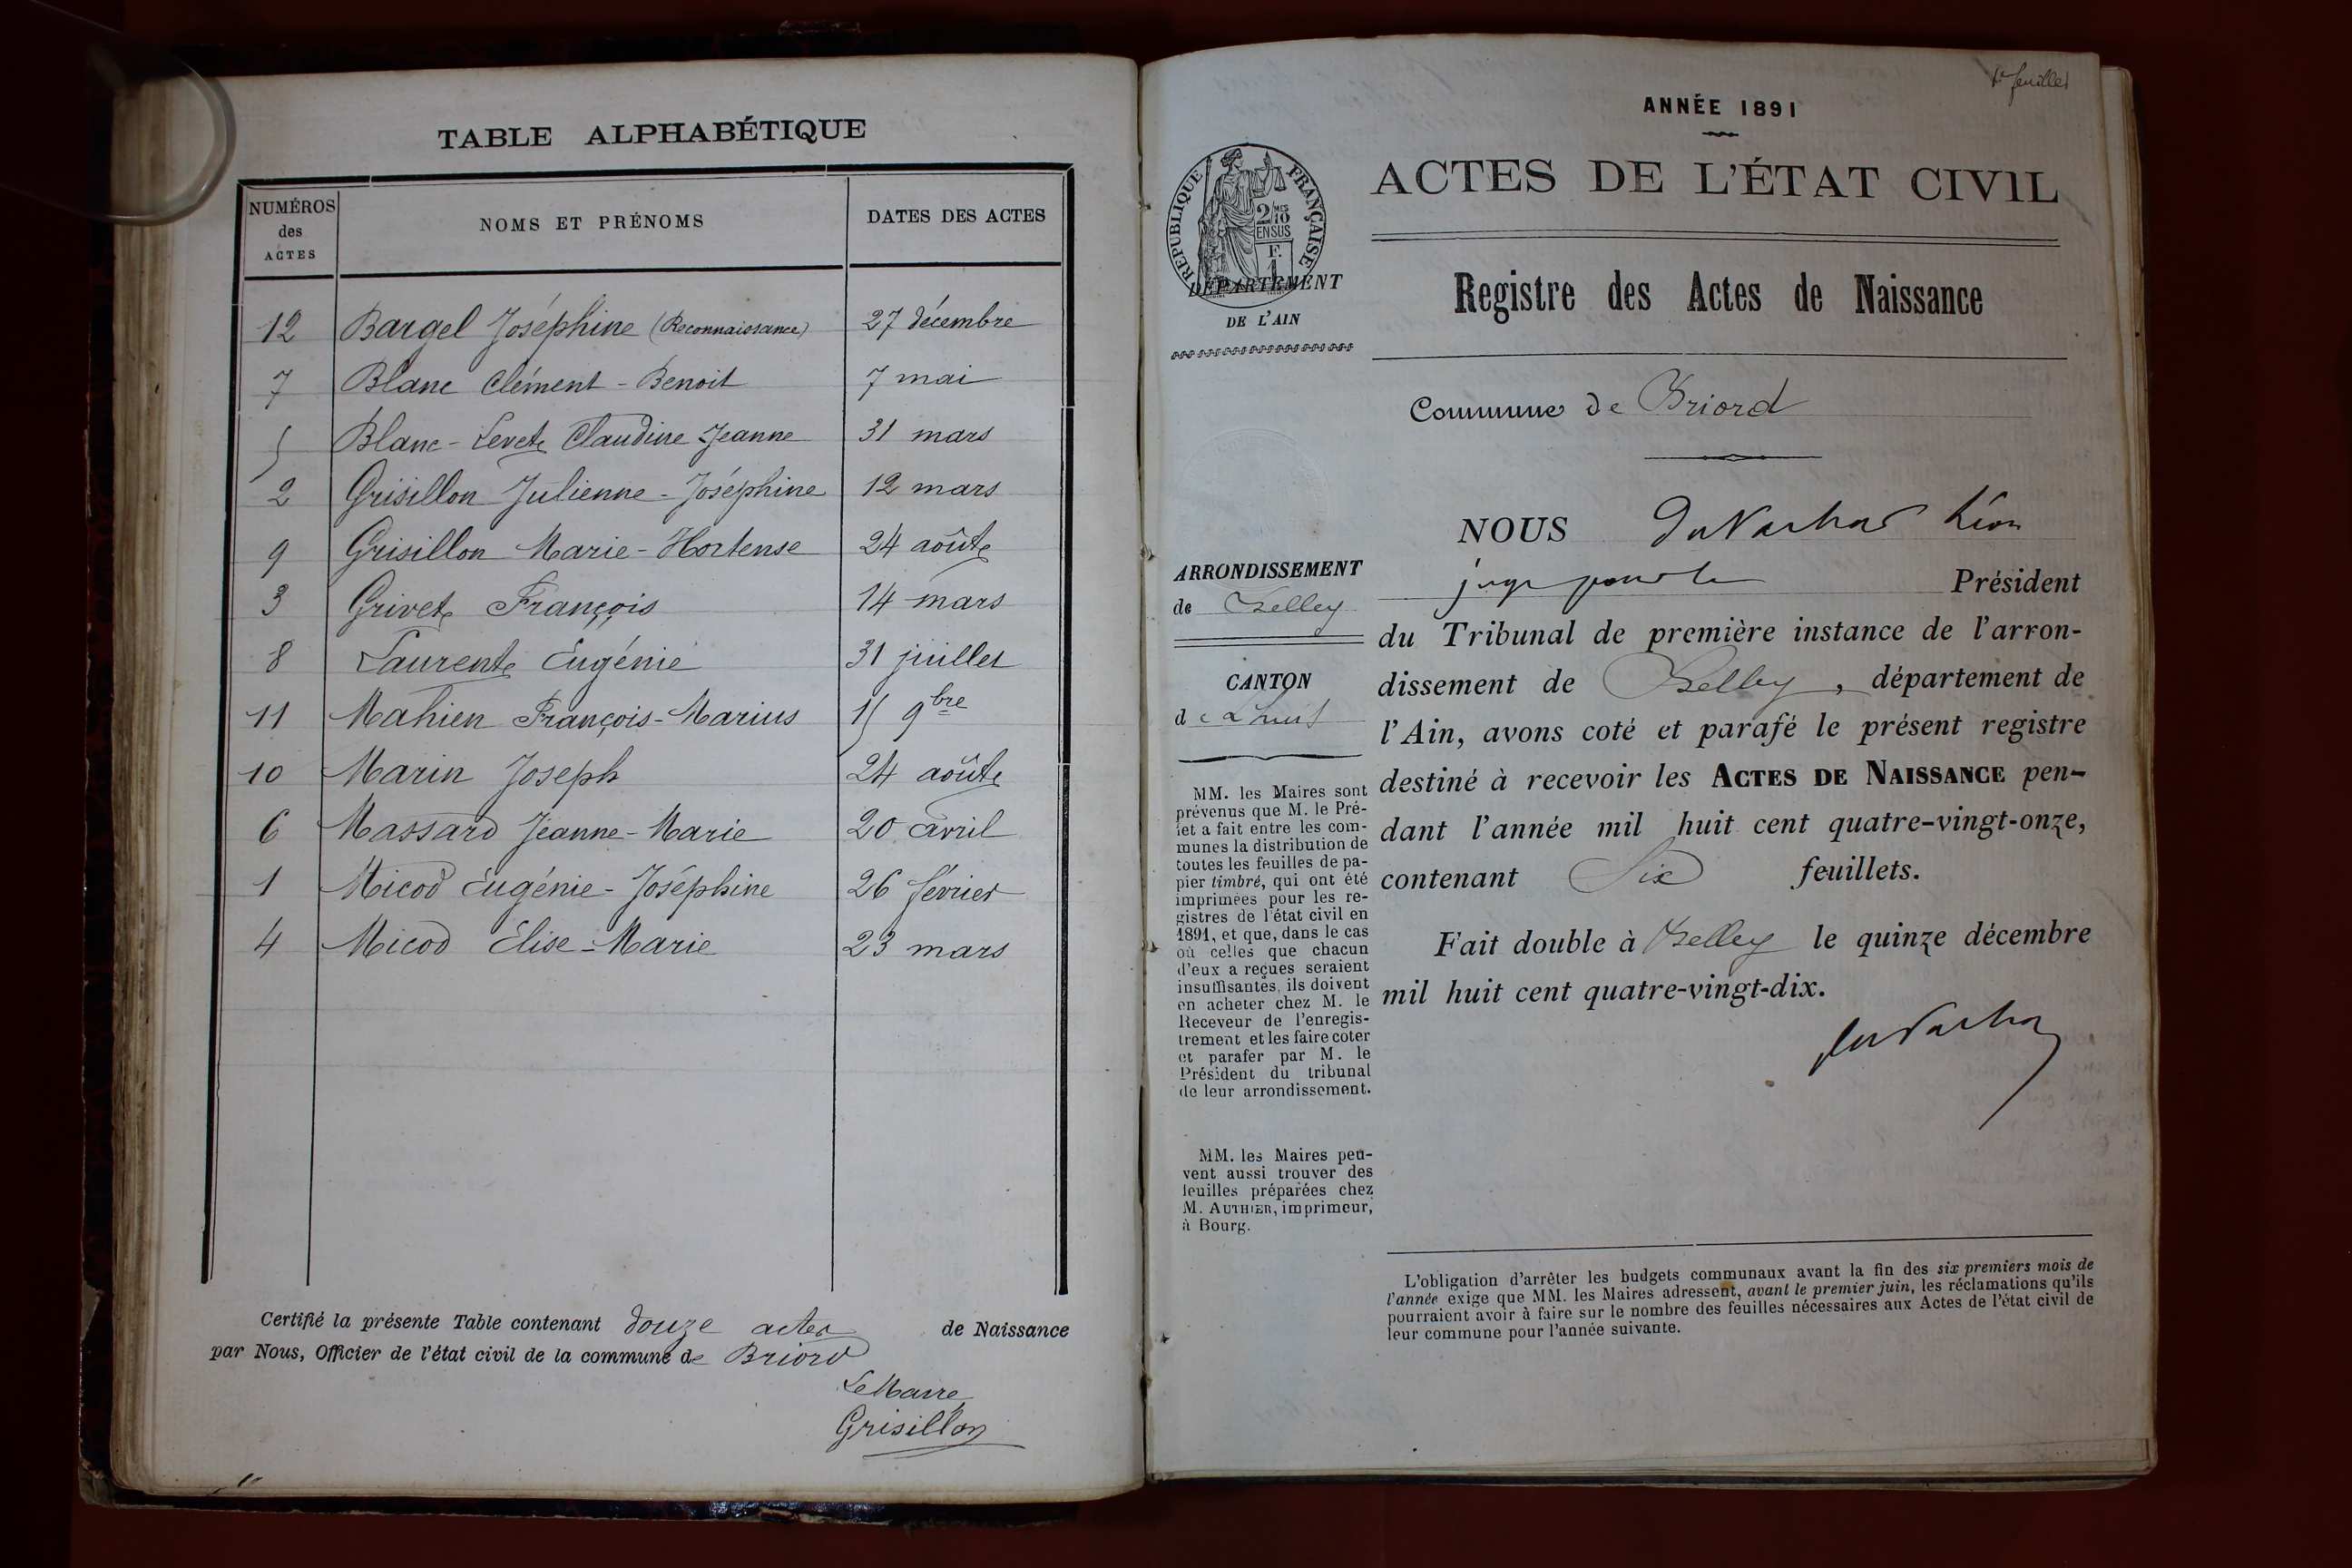 TABLE ALPHABÉTIQUE
NUMÉROS des ACTES
NOMS ET PRÉNOMS
DATES DES ACTES
12 Bargel Joséphine (Reconnaissance) 27 décembre
7 Blanc Clément-Benoit 7 mai
5 Blanc-Levet Claudine Jeanne 31 mars
2 Grisillon Julienne-Joséphine 12 mars
9 Grisillon Marie-Hortense 24 août
3 Grivet François 14 mars
8 Laurent Eugénie 31 juillet
11 Mahien François-Marius 15 9bre
10 Marin Joseph 24 août
6 Massard Jeanne-Marie 20 avril
1 Micod Eugénie-Joséphine 26 février
4 Micod Elise-Marie 23 mars
Certifié la présente Table contenant douze actes de Naissance
par Nous, Officier de l'état civil de la commune de Briord
Le Maire
Grisillon
ANNÉE 1891
ACTES DE L'ÉTAT CIVIL
RÉPUBLIQUE FRANÇAISE
2/10 MES
EN SUS
F.
1
DÉPARTEMENT
DE L'AIN
Registre des Actes de Naissance
Commune de Briord
ARRONDISSEMENT
de Belley
CANTON
de Lhuis
MM. les Maires sont
prévenus que M. le Pré-
fet a fait entre les com-
munes la distribution de
toutes les feuilles de pa-
pier timbré, qui ont été
imprimées pour les re-
gistres de l'état civil en
1891, et que, dans le cas
où celles que chacun
d'eux a reçues seraient
insuffisantes, ils doivent
en acheter chez M. le
Receveur de l'enregis-
trement et les faire coter
et parafer par M. le
Président du tribunal
de leur arrondissement.
MM. les Maires peu-
vent aussi trouver des
feuilles préparées chez
M. AUTHIER, imprimeur,
à Bourg.
NOUS Léon
juge pour le Président
du Tribunal de première instance de l'arron-
dissement de Belley, département de
l'Ain, avons coté et parafé le présent registre
destiné à recevoir les ACTES DE NAISSANCE pen-
dant l'année mil huit cent quatre-vingt-onze,
contenant Six feuillets.
Fait double à Belley le quinze décembre
mil huit cent quatre-vingt-dix.
L'obligation d'arrêter les budgets communaux avant la fin des six premiers mois de
l'année exige que MM. les Maires adressent, avant le premier juin, les réclamations qu'ils
pourraient avoir à faire sur le nombre des feuilles nécessaires aux Actes de l'état civil de
leur commune pour l'année suivante.